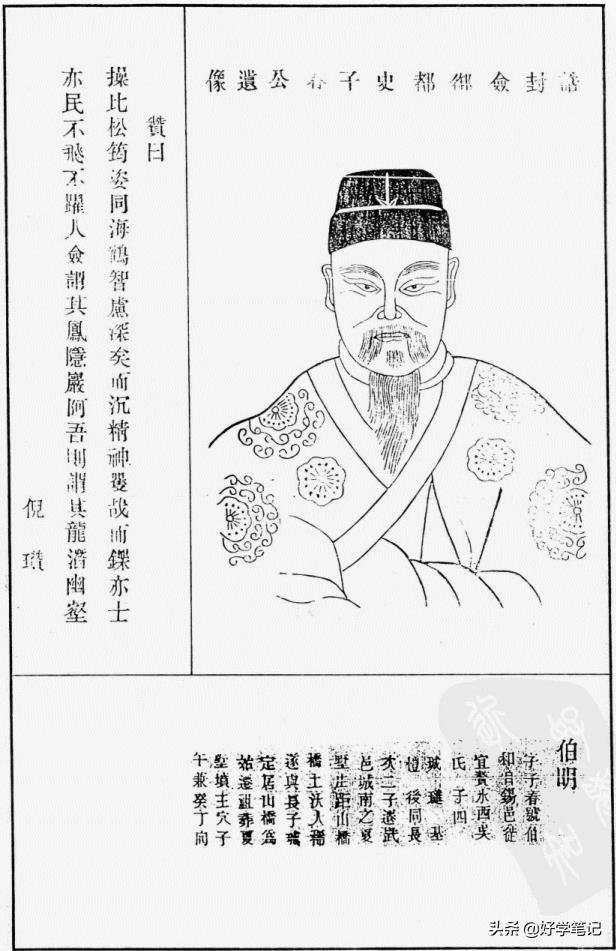 誥封僉御都史子春公遺像
贊曰
操比松筠姿同海鶴智慮深矣而沉精神矍哉而鑠亦士
亦民不飛不躍人僉謂其鳳隱巖阿吾則謂其龍潛幽壑
倪瓚
伯明
字子春號伯
和自錫邑從
宜水西吳
氏子四
璡基
愷後同長
次二子遷武
邑城南之夏
墅庄距山橋
橋土沃人稀
遂與長子
定居山橋為
始遷祖葬夏
墅墳主穴子
午兼癸丁向
头条 @好学笔记